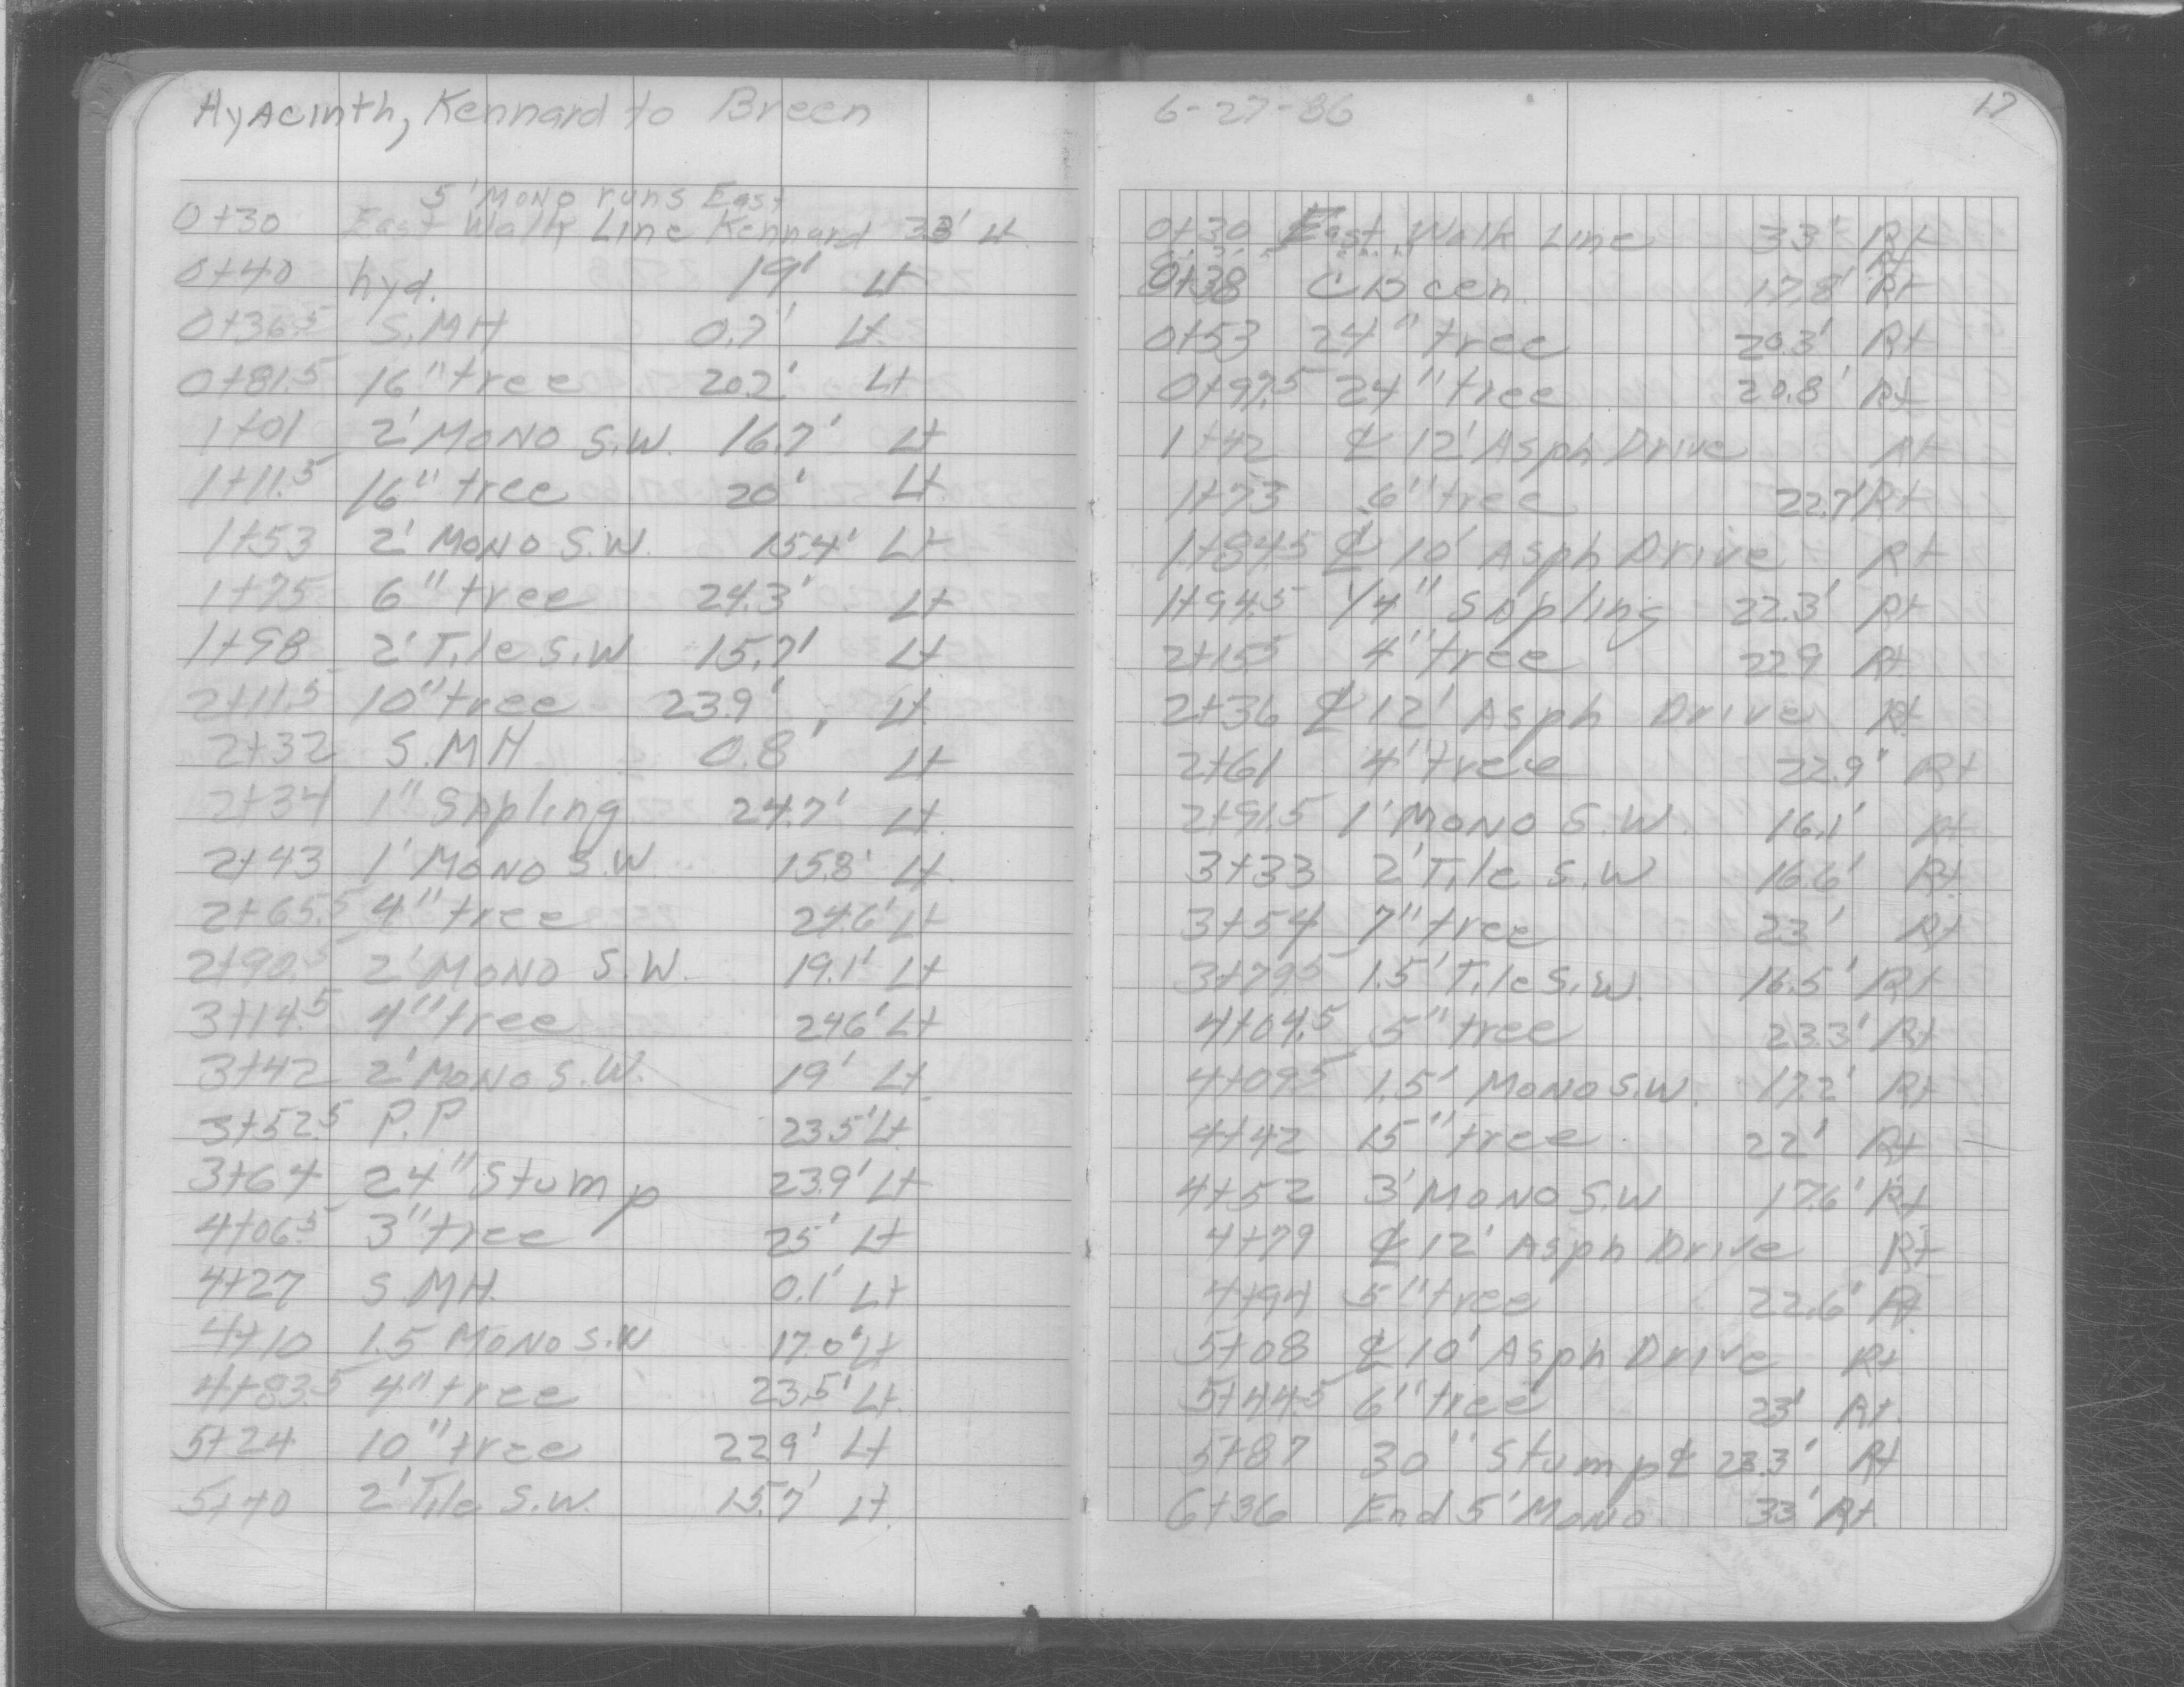 Hyacinth, Kennard to Breen
5' Mono runs East
0+30 East Walk Line Kennard 33' Lt
0+40 hyd. 19' Lt
0+36.5 S.MH 0.7' Lt
0+81.5 16" tree 20.2' Lt
1+01 2' Mono S.W. 16.7' Lt
1+11.5 16" tree 20' Lt
1+53 2' Mono S.W. 15.4' Lt
1+75 6" tree 24.3' Lt
1+98 2' Tile S.W 15.7' Lt
2+11.5 10" tree 23.9' Lt
2+32 S.MH 0.8' Lt
2+34 1" Sapling 24.7' Lt
2+43 1' Mono S.W. 15.8' Lt
2+65.5 4" tree 24.6' Lt
2+90.5 2' Mono S.W. 19.1' Lt
3+14.5 4" tree 24.6' Lt
3+42 2' Mono S.W. 19' Lt
3+52.5 P.P 23.5' Lt
3+64 24" Stump 23.9' Lt
4+06.5 3" tree 25' Lt
4+27 S.MH. 0.1' Lt
4+10 1.5 Mono S.W 17.0' Lt
4+83.5 4" tree 23.5' Lt
5+24 10" tree 22.9' Lt
5+40 2' Tile S.W. 15.7' Lt
6-27-86 17
0+30 East Walk Line 33' Rt
0+38 CB cen. 17.8' Rt
0+53 24" tree 20.3' Rt
0+97.5 24" tree 20.8' Rt
1+42 ℄ 12' Asph Drive Rt
1+73 6" tree 22.7' Rt
1+84.5 ℄ 10' Asph Drive Rt
1+94.5 1/4" Sapling 22.3' Rt
2+15.5 4" tree 22.9 Rt
2+36 ℄ 12' Asph Drive Rt
2+61 4" tree 22.9" Rt
2+91.5 1' Mono S.W. 16.1' Rt
3+33 2' Tile S.W 16.6' Rt
3+54 7" tree 23' Rt
3+79.5 1.5' Tile S.W. 16.5' Rt
4+04.5 5" tree 23.3' Rt
4+09.5 1.5' Mono S.W. 17.2' Rt
4+42 15" tree 22' Rt
4+52 3' Mono S.W 17.6' Rt
4+79 ℄ 12' Asph Drive Rt
4+94 5" tree 22.6' Rt
5+08 ℄ 10' Asph Drive Rt
5+44.5 6" tree 23' Rt
5+87 30" Stump ℄ 23.3' Rt
6+36 End 5' Mono 33' Rt.